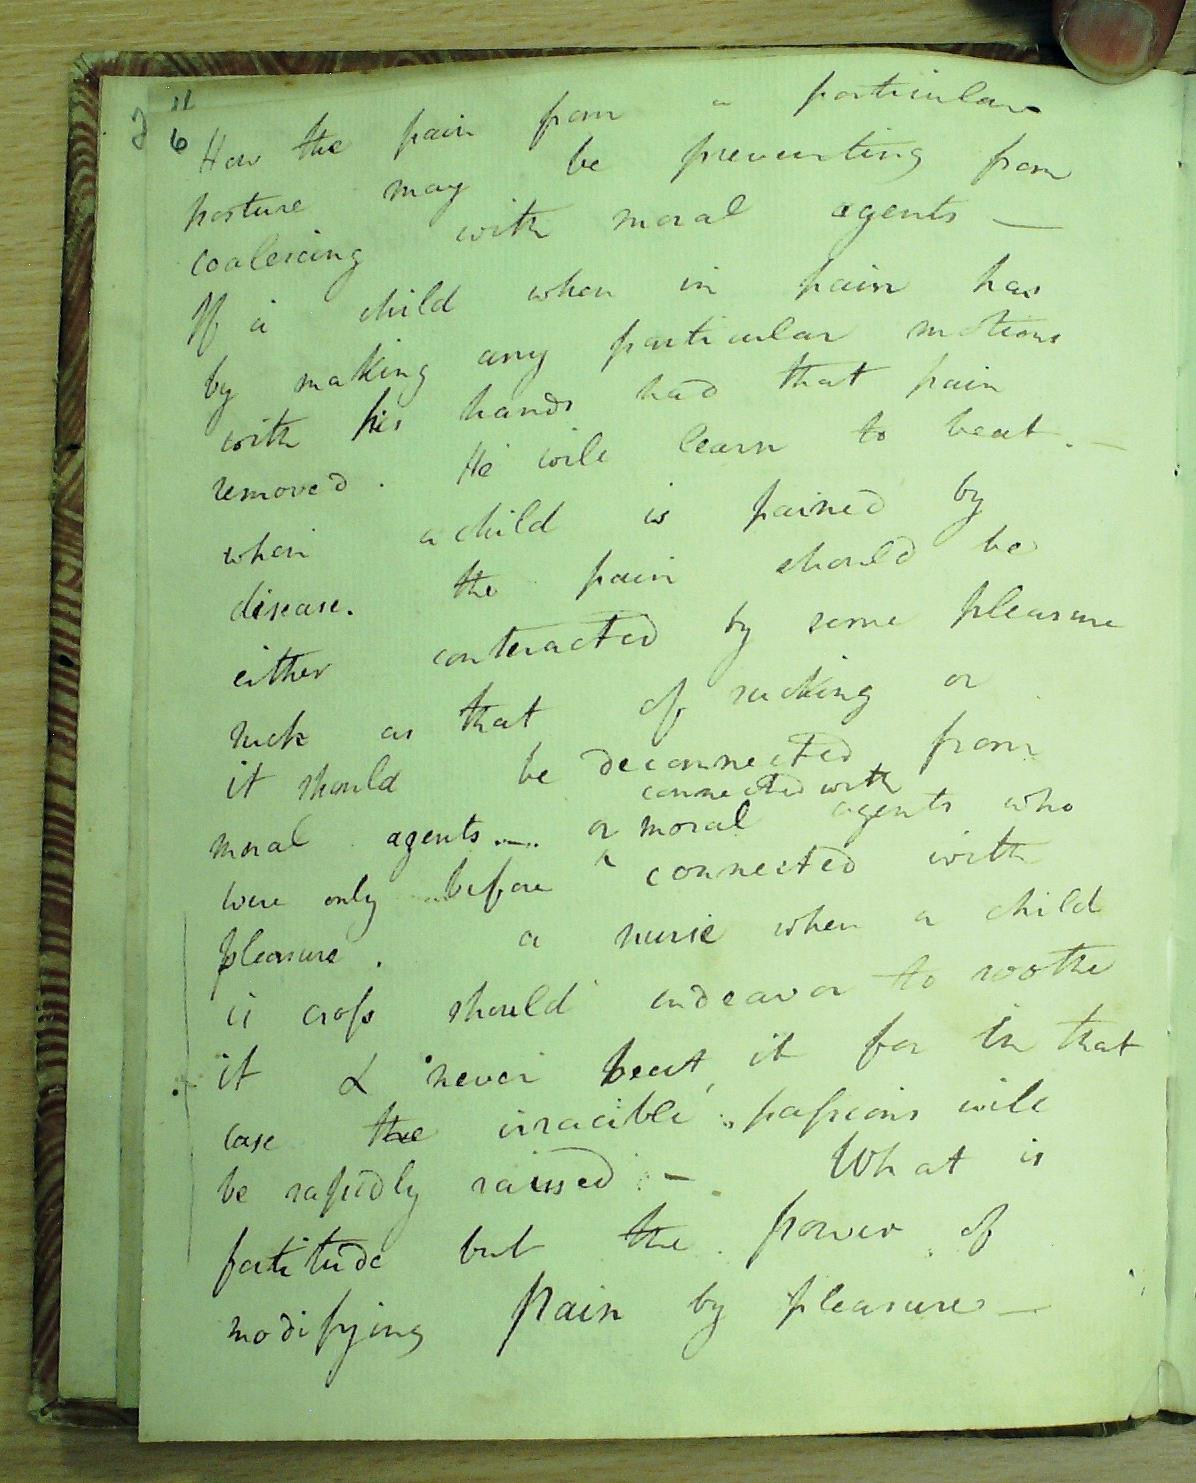 11
6
How the pain from a particular
posture may be preventing from
coalescing with moral agents —
If a child when in pain has
by making any particular motions
with his hands had that pain
removed. He will learn to beat. —
when a child is pained by
disease. the pain should be
either conteracted by some pleasure
such as that of sucking or
it should be deconnected from
connected with
moral agents — or moral agents who
were only before connected with
pleasure. a nurse when a child
is cross should endeavor to soothe
it & never beat it for in that
case the irracible passions will
be rapidly raised — What is
fortitude but the power of
modifying pain by pleasures —